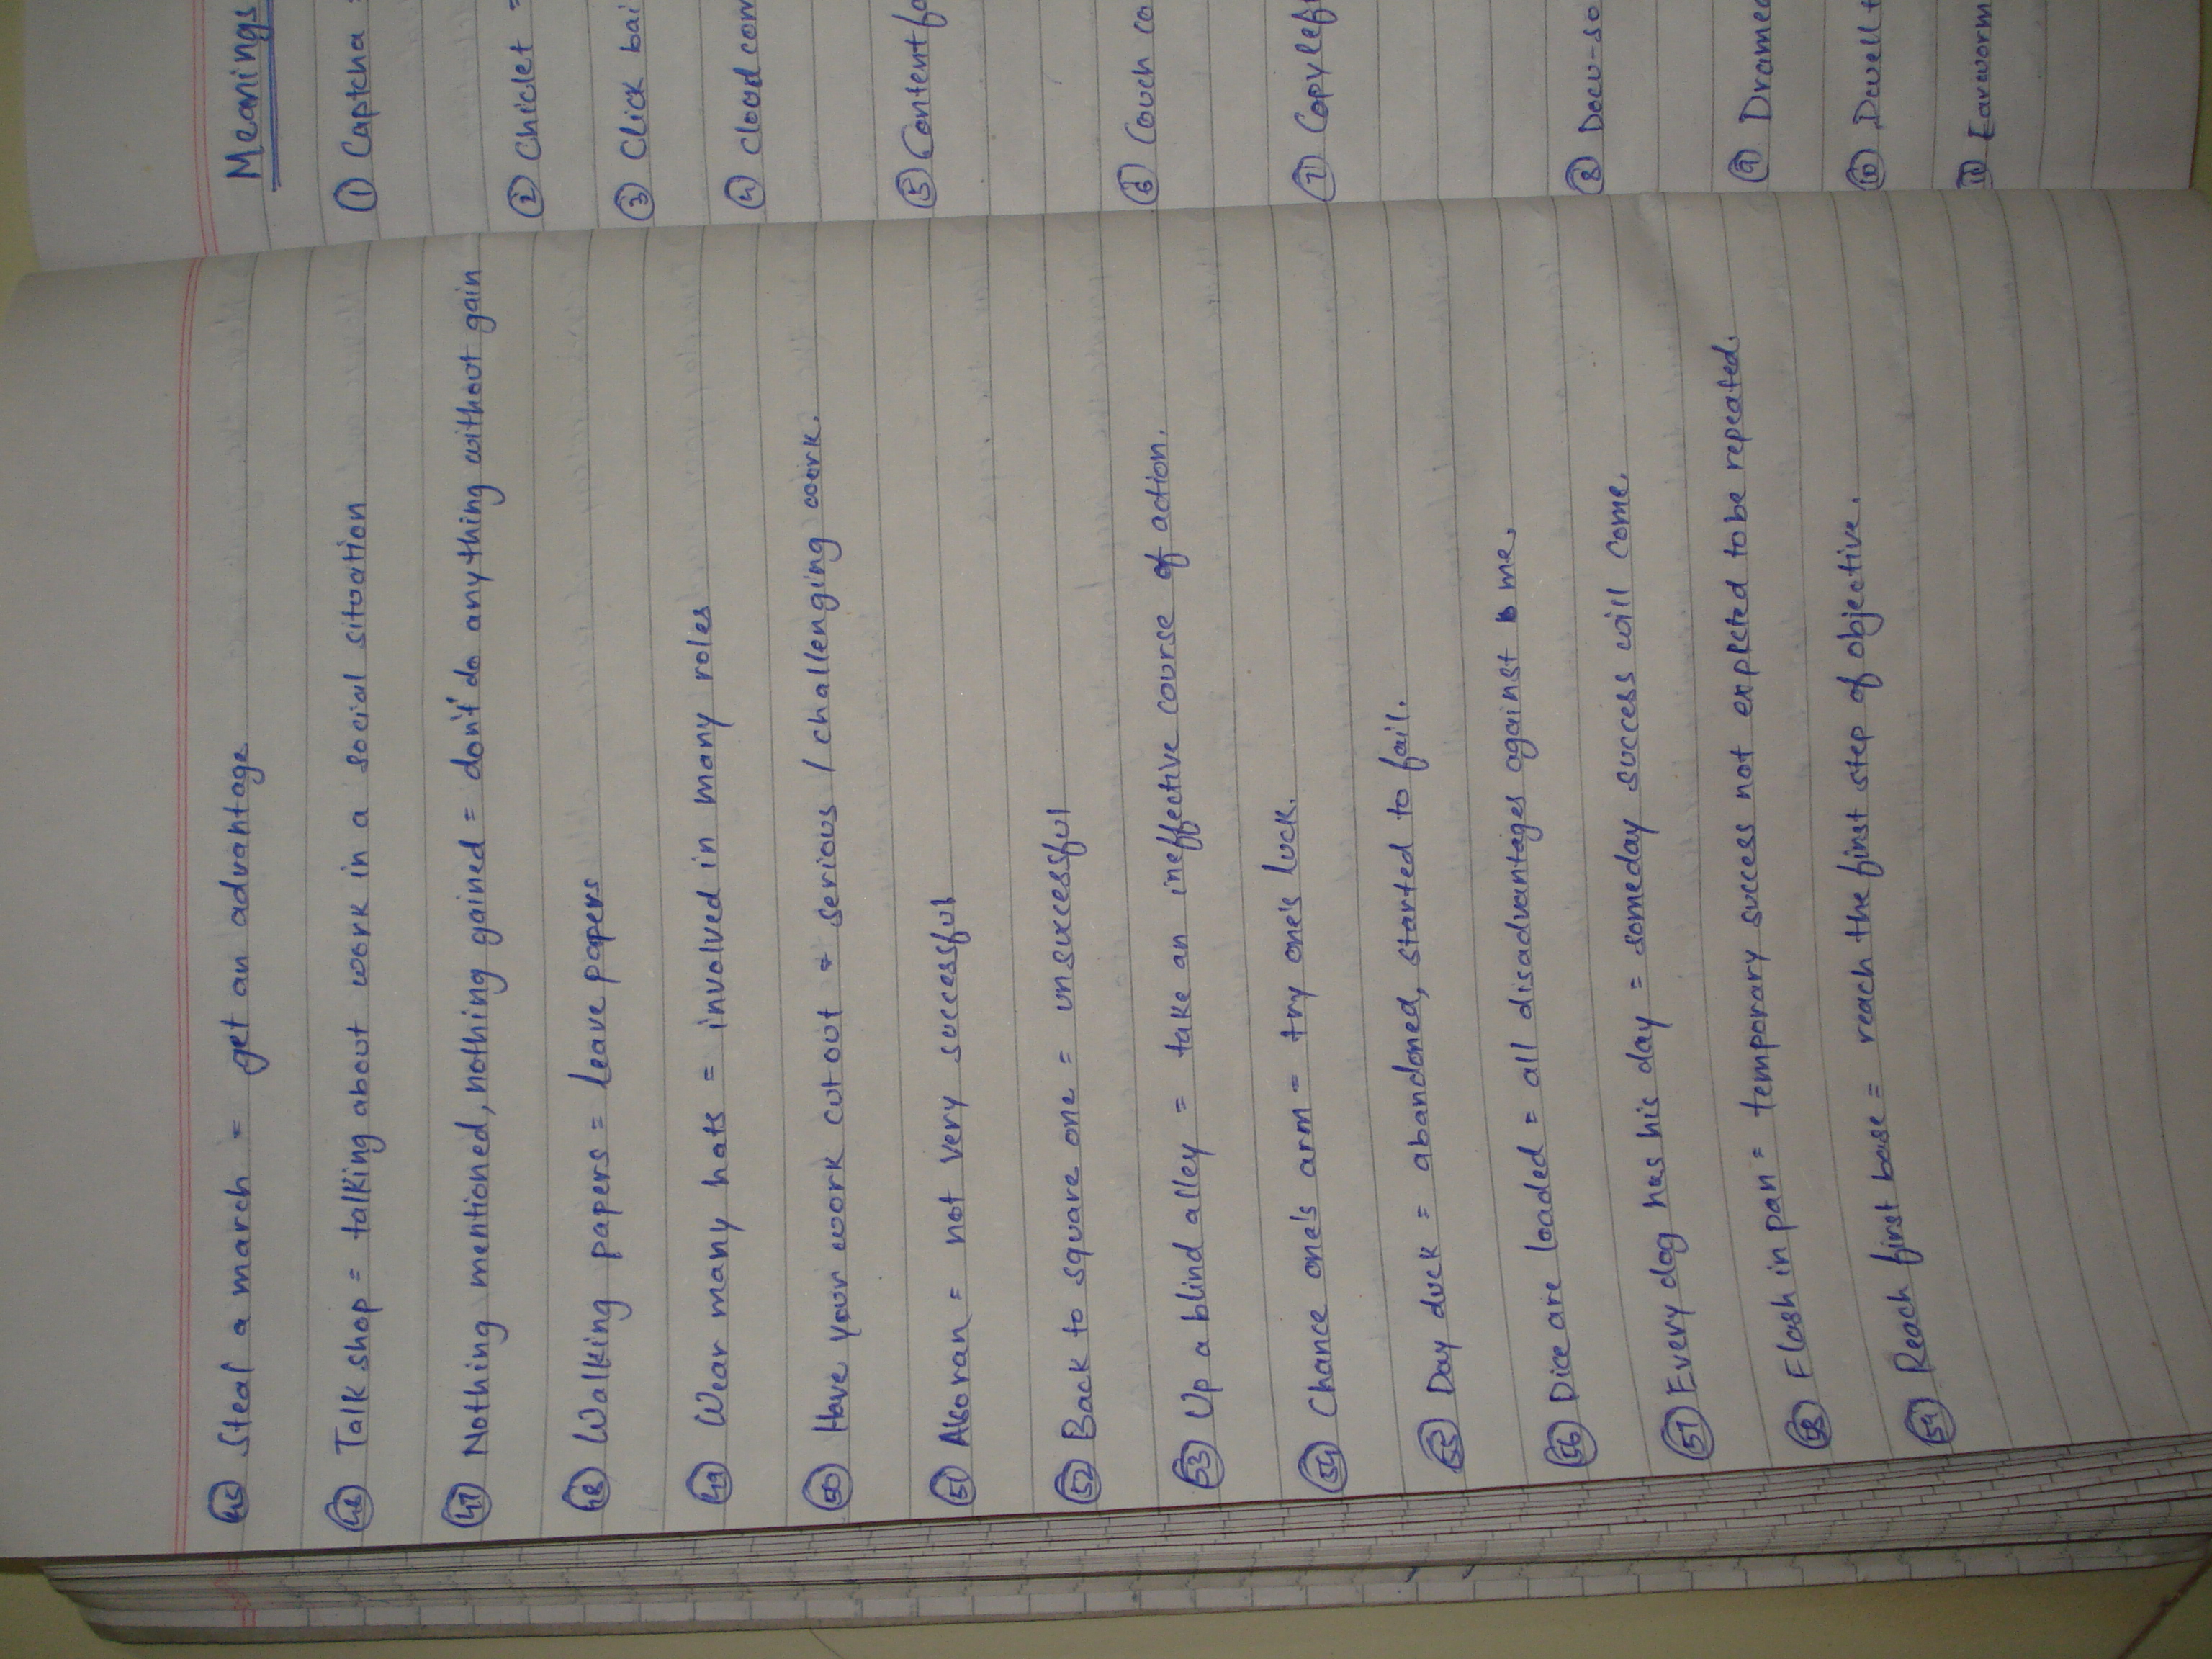 45 Steal a march = get an advantage
46 Talk shop = talking about work in a social situation
47 Nothing mentioned, nothing gained = don't do anything without gain
48 Walking papers = leave papers
49 Wear many hats = involved in many roles
50 Have your work cut out = serious / challenging work.
51 Also ran = not very successful
52 Back to square one = unsuccessful
53 Up a blind alley = take an ineffective course of action.
54 Chance one's arm = try one's luck.
55 Day duck = abandoned, started to fail.
56 Dice are loaded = all disadvantages against me.
57 Every dog has his day = someday success will come.
58 Flash in pan = temporary success not expected to be repeated.
59 Reach first base = reach the first step of objective.
Meanings
1 Captcha
2 Chiclet =
3 Click bai
4 cloud com
5 Content fa
6 Couch co
7 Copylef
8 Docu-so
9 Dramed
10 Dwell t
11 Earworm